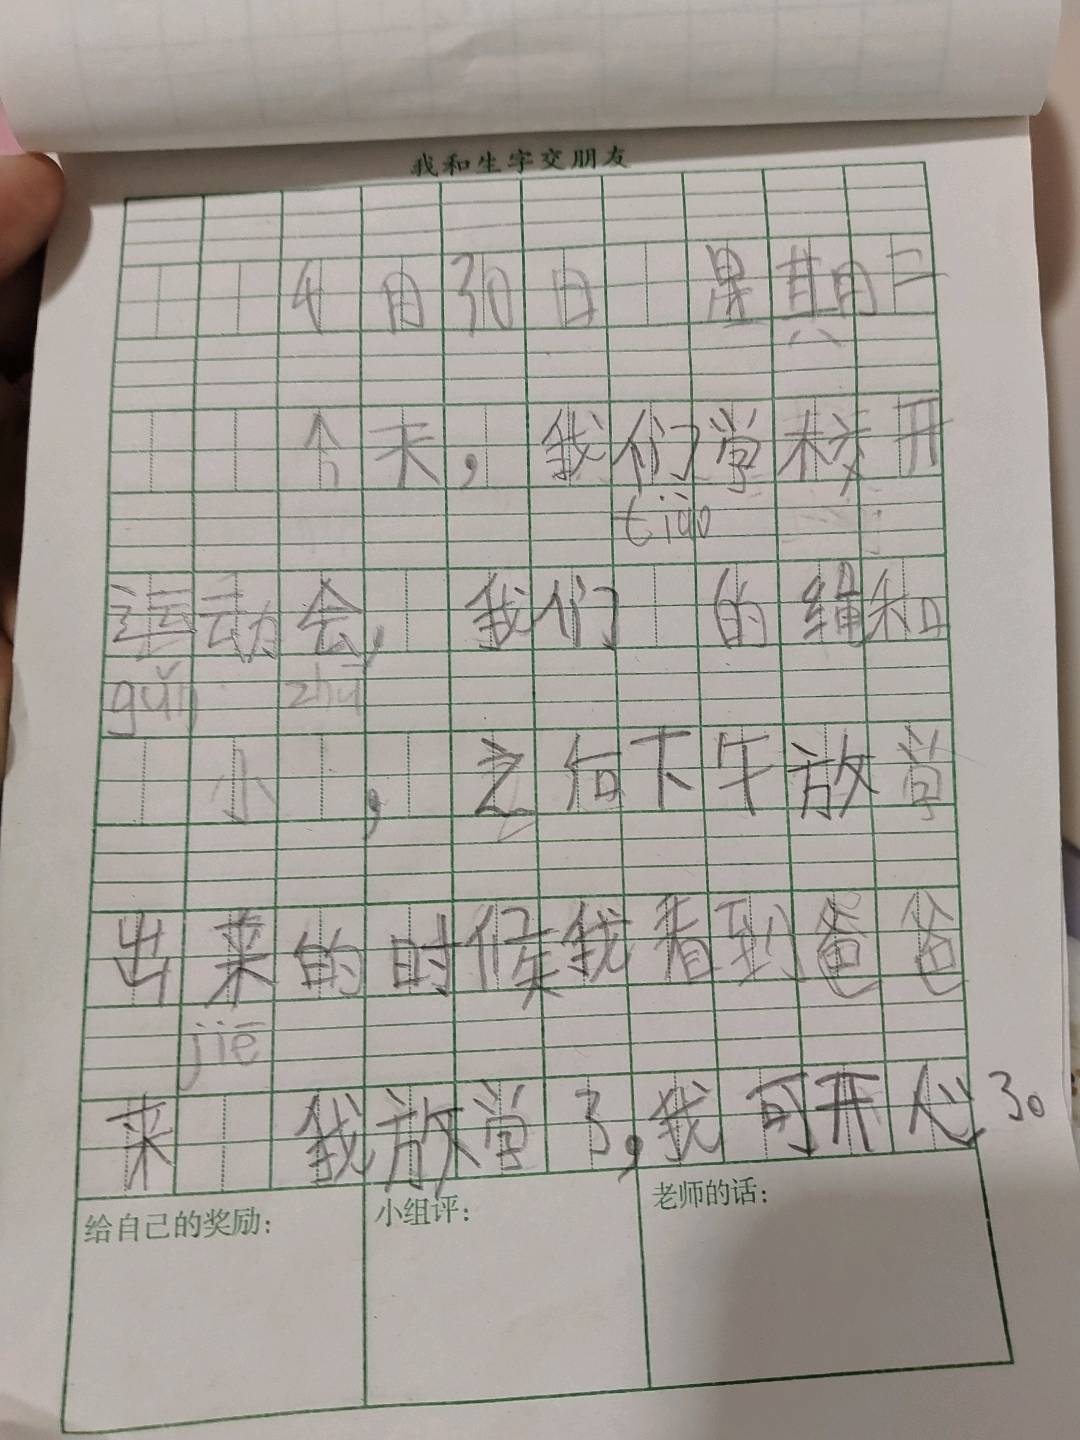 我和生字交朋友
4月30日 星期二
今天,我们学校开
tiào
运动会,我们 的绳和
gǔn zhū
小 ,之后下午放学
出来的时候我看到爸爸
jiē
来 我放学了,我可开心了。
给自己的奖励: 小组评: 老师的话: